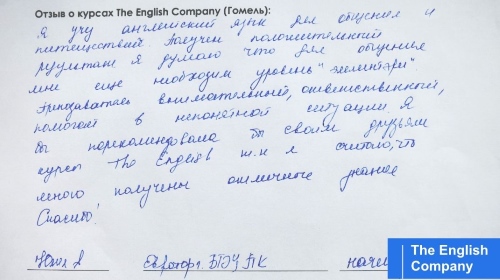 Отзыв о курсах The English Company (Гомель):
Я учу английский язык для общения и
путешествий. Получен положительный
результат я думаю что для общения
мне еще необходим уровень "элементари".
Преподаватель внимательный, ответственный,
помогает в непонятной ситуации. Я
бы порекомендовала бы своим друзьям
курсы The English т.к я считаю, что
много получены отличные знание
Спасибо!
Юлия
The English
Company